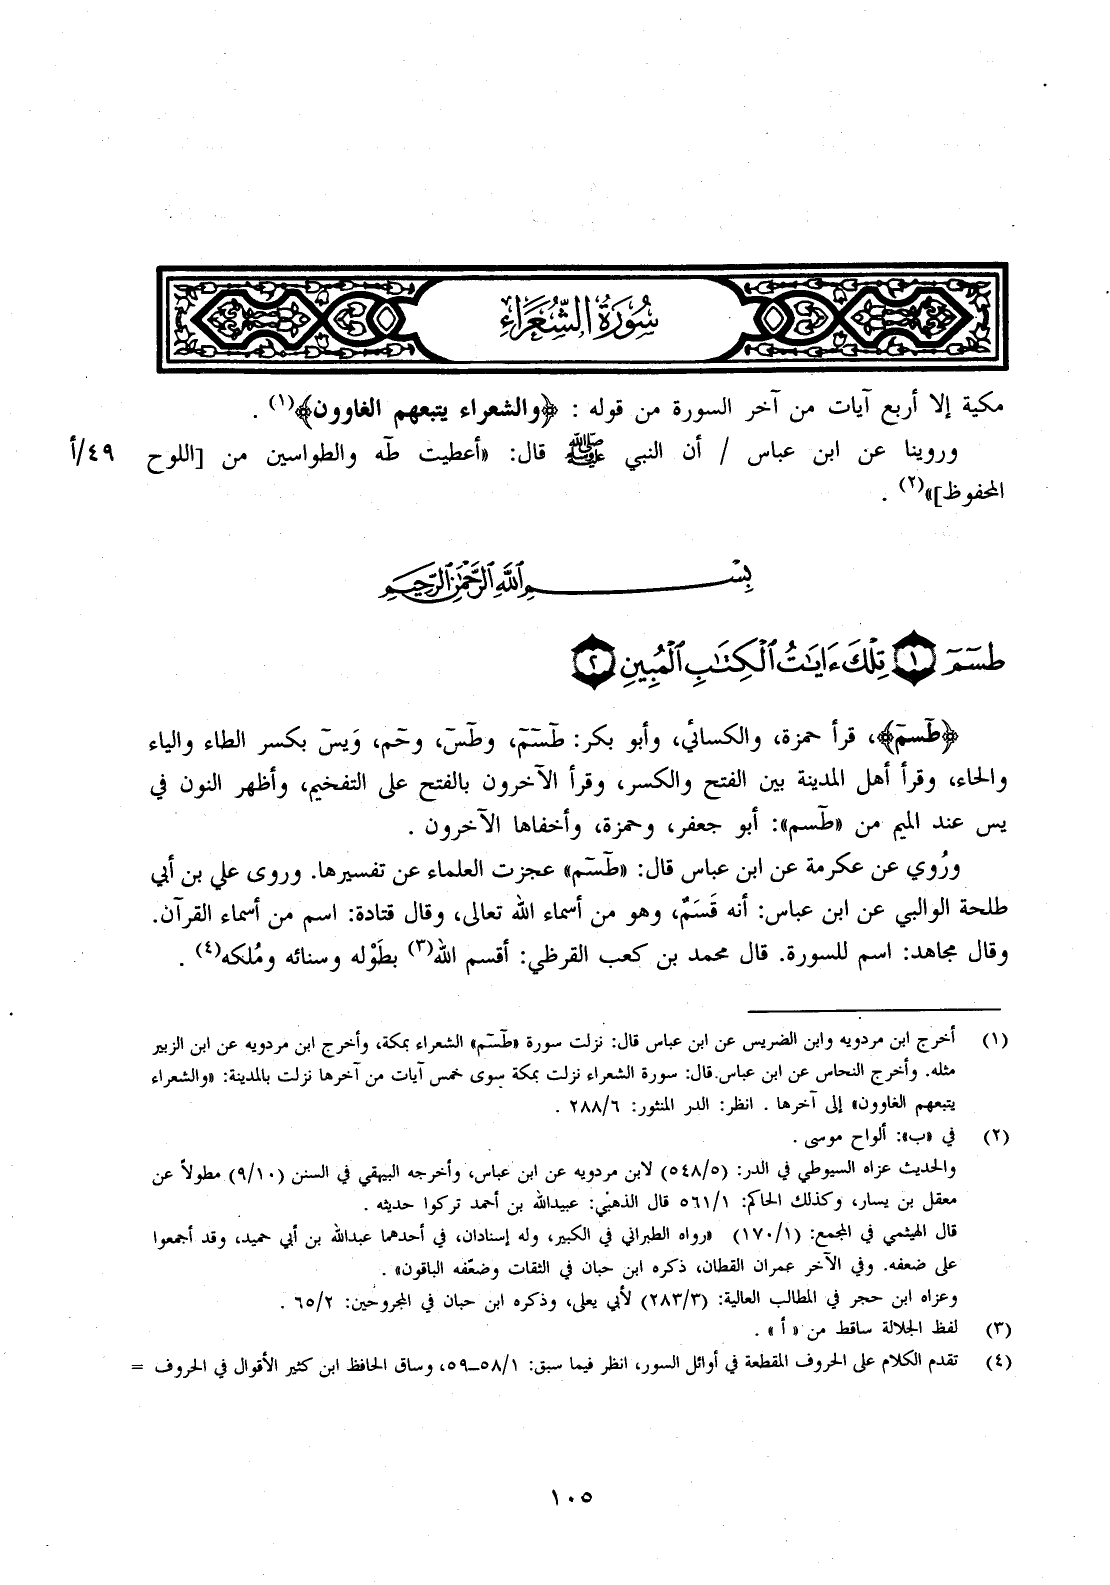 سُورَةُ الشُّعَرَاءِ
مكية إلا أربع آيات من آخر السورة من قوله : ﴿والشعراء يتبعهم الغاوون﴾(١) .
وروينا عن ابن عباس / أن النبي ﷺ قال: «أعطيت طه والطواسين من [اللوح ٤٩/أ
المحفوظ]»(٢) .
بِسْمِ اللَّهِ الرَّحْمَٰنِ الرَّحِيمِ
طسٓمٓ ١ تِلْكَ ءَايَٰتُ ٱلْكِتَٰبِ ٱلْمُبِينِ ٢
﴿طٓسمٓ﴾، قرأ حمزة، والكسائي، وأبو بكر: طٓسٓمٓ، وطٓسٓ، وحٓم، وَيسٓ بكسر الطاء والياء
والحاء، وقرأ أهل المدينة بين الفتح والكسر، وقرأ الآخرون بالفتح على التفخيم، وأظهر النون في
يس عند الميم من «طٓسم»: أبو جعفر، وحمزة، وأخفاها الآخرون .
ورُوي عن عكرمة عن ابن عباس قال: «طٓسٓم» عجزت العلماء عن تفسيرها. وروى علي بن أبي
طلحة الوالبي عن ابن عباس: أنه قَسَمٌ، وهو من أسماء الله تعالى، وقال قتادة: اسم من أسماء القرآن.
وقال مجاهد: اسم للسورة. قال محمد بن كعب القرظي: أقسم الله(٣) بطَوْله وسنائه ومُلكه(٤) .
(١) أخرج ابن مردويه وابن الضريس عن ابن عباس قال: نزلت سورة «طٓسٓم» الشعراء بمكة، وأخرج ابن مردويه عن ابن الزبير
مثله. وأخرج النحاس عن ابن عباس قال: سورة الشعراء نزلت بمكة سوى خمس آيات من آخرها نزلت بالمدينة: «والشعراء
يتبعهم الغاوون» إلى آخرها . انظر: الدر المنثور: ٢٨٨/٦ .
(٢) في «ب»: ألواح موسى .
والحديث عزاه السيوطي في الدر: (٥٤٨/٥) لابن مردويه عن ابن عباس، وأخرجه البيهقي في السنن (٩/١٠) مطولاً عن
معقل بن يسار، وكذلك الحاكم: ٥٦١/١ قال الذهبي: عبيدالله بن أحمد تركوا حديثه .
قال الهيثمي في المجمع: (١٧٠/١) «رواه الطبراني في الكبير، وله إسنادان، في أحدهما عبدالله بن أبي حميد، وقد أجمعوا
على ضعفه. وفي الآخر عمران القطان، ذكره ابن حبان في الثقات وضعّفه الباقون» .
وعزاه ابن حجر في المطالب العالية: (٢٨٣/٣) لأبي يعلى، وذكره ابن حبان في المجروحين: ٦٥/٢ .
(٣) لفظ الجلالة ساقط من «أ» .
(٤) تقدم الكلام على الحروف المقطعة في أوائل السور، انظر فيما سبق: ٥٨/١ـ٥٩، وساق الحافظ ابن كثير الأقوال في الحروف =
١٠٥